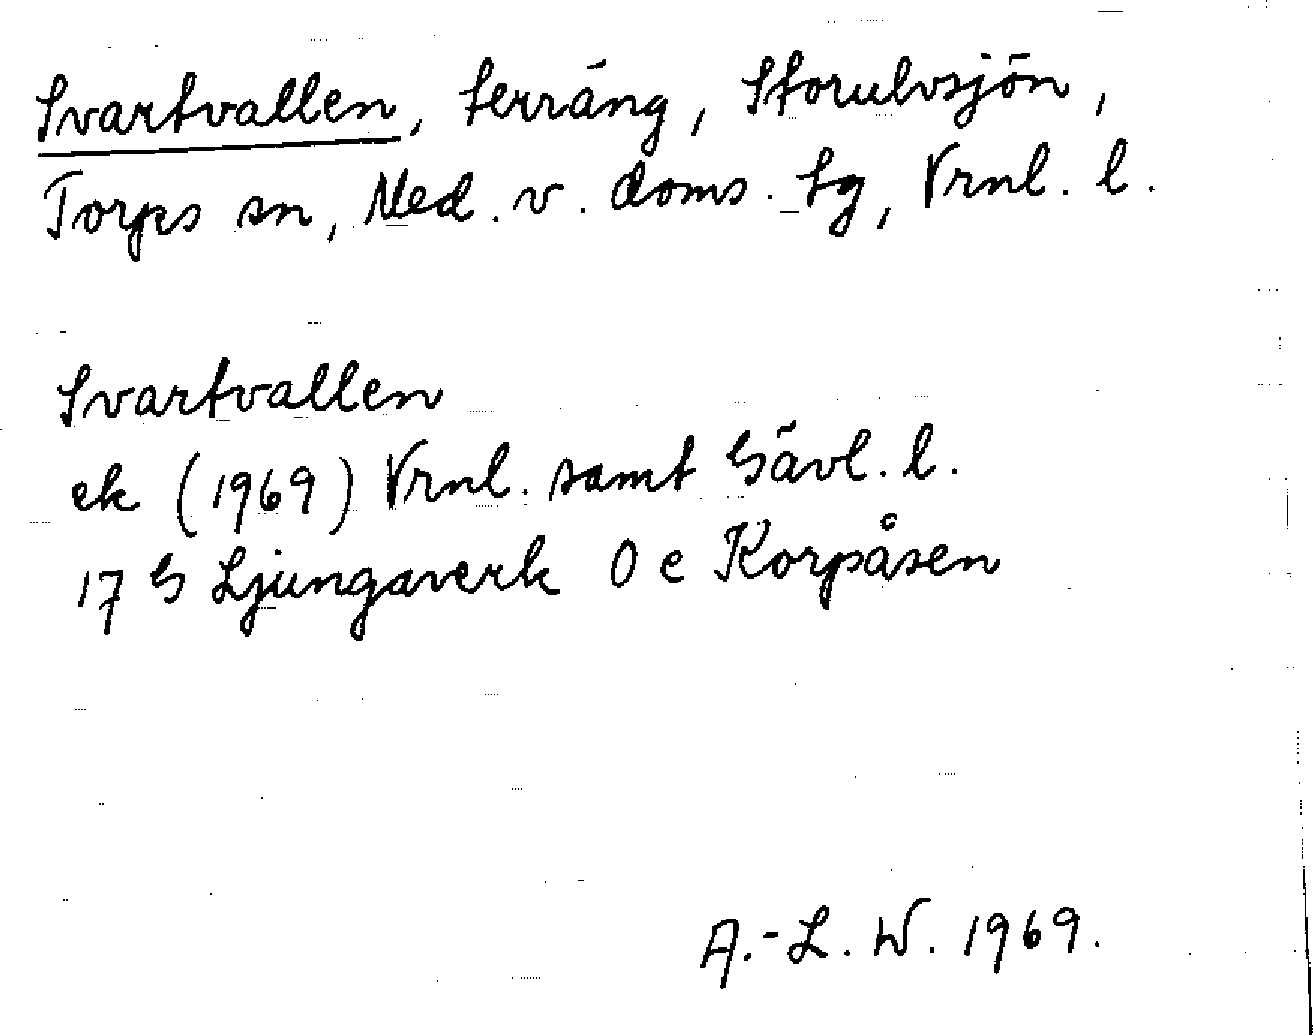 Svartvallen, terräng, Storulvsjön,
Torps sn, Med. v. doms. tg, Vrnl. l.
Svartvallen
ek (1969) Vrnl. samt Gävl. l.
17 G Ljungaverk 0 e Korpåsen
A.-L. W. 1969.